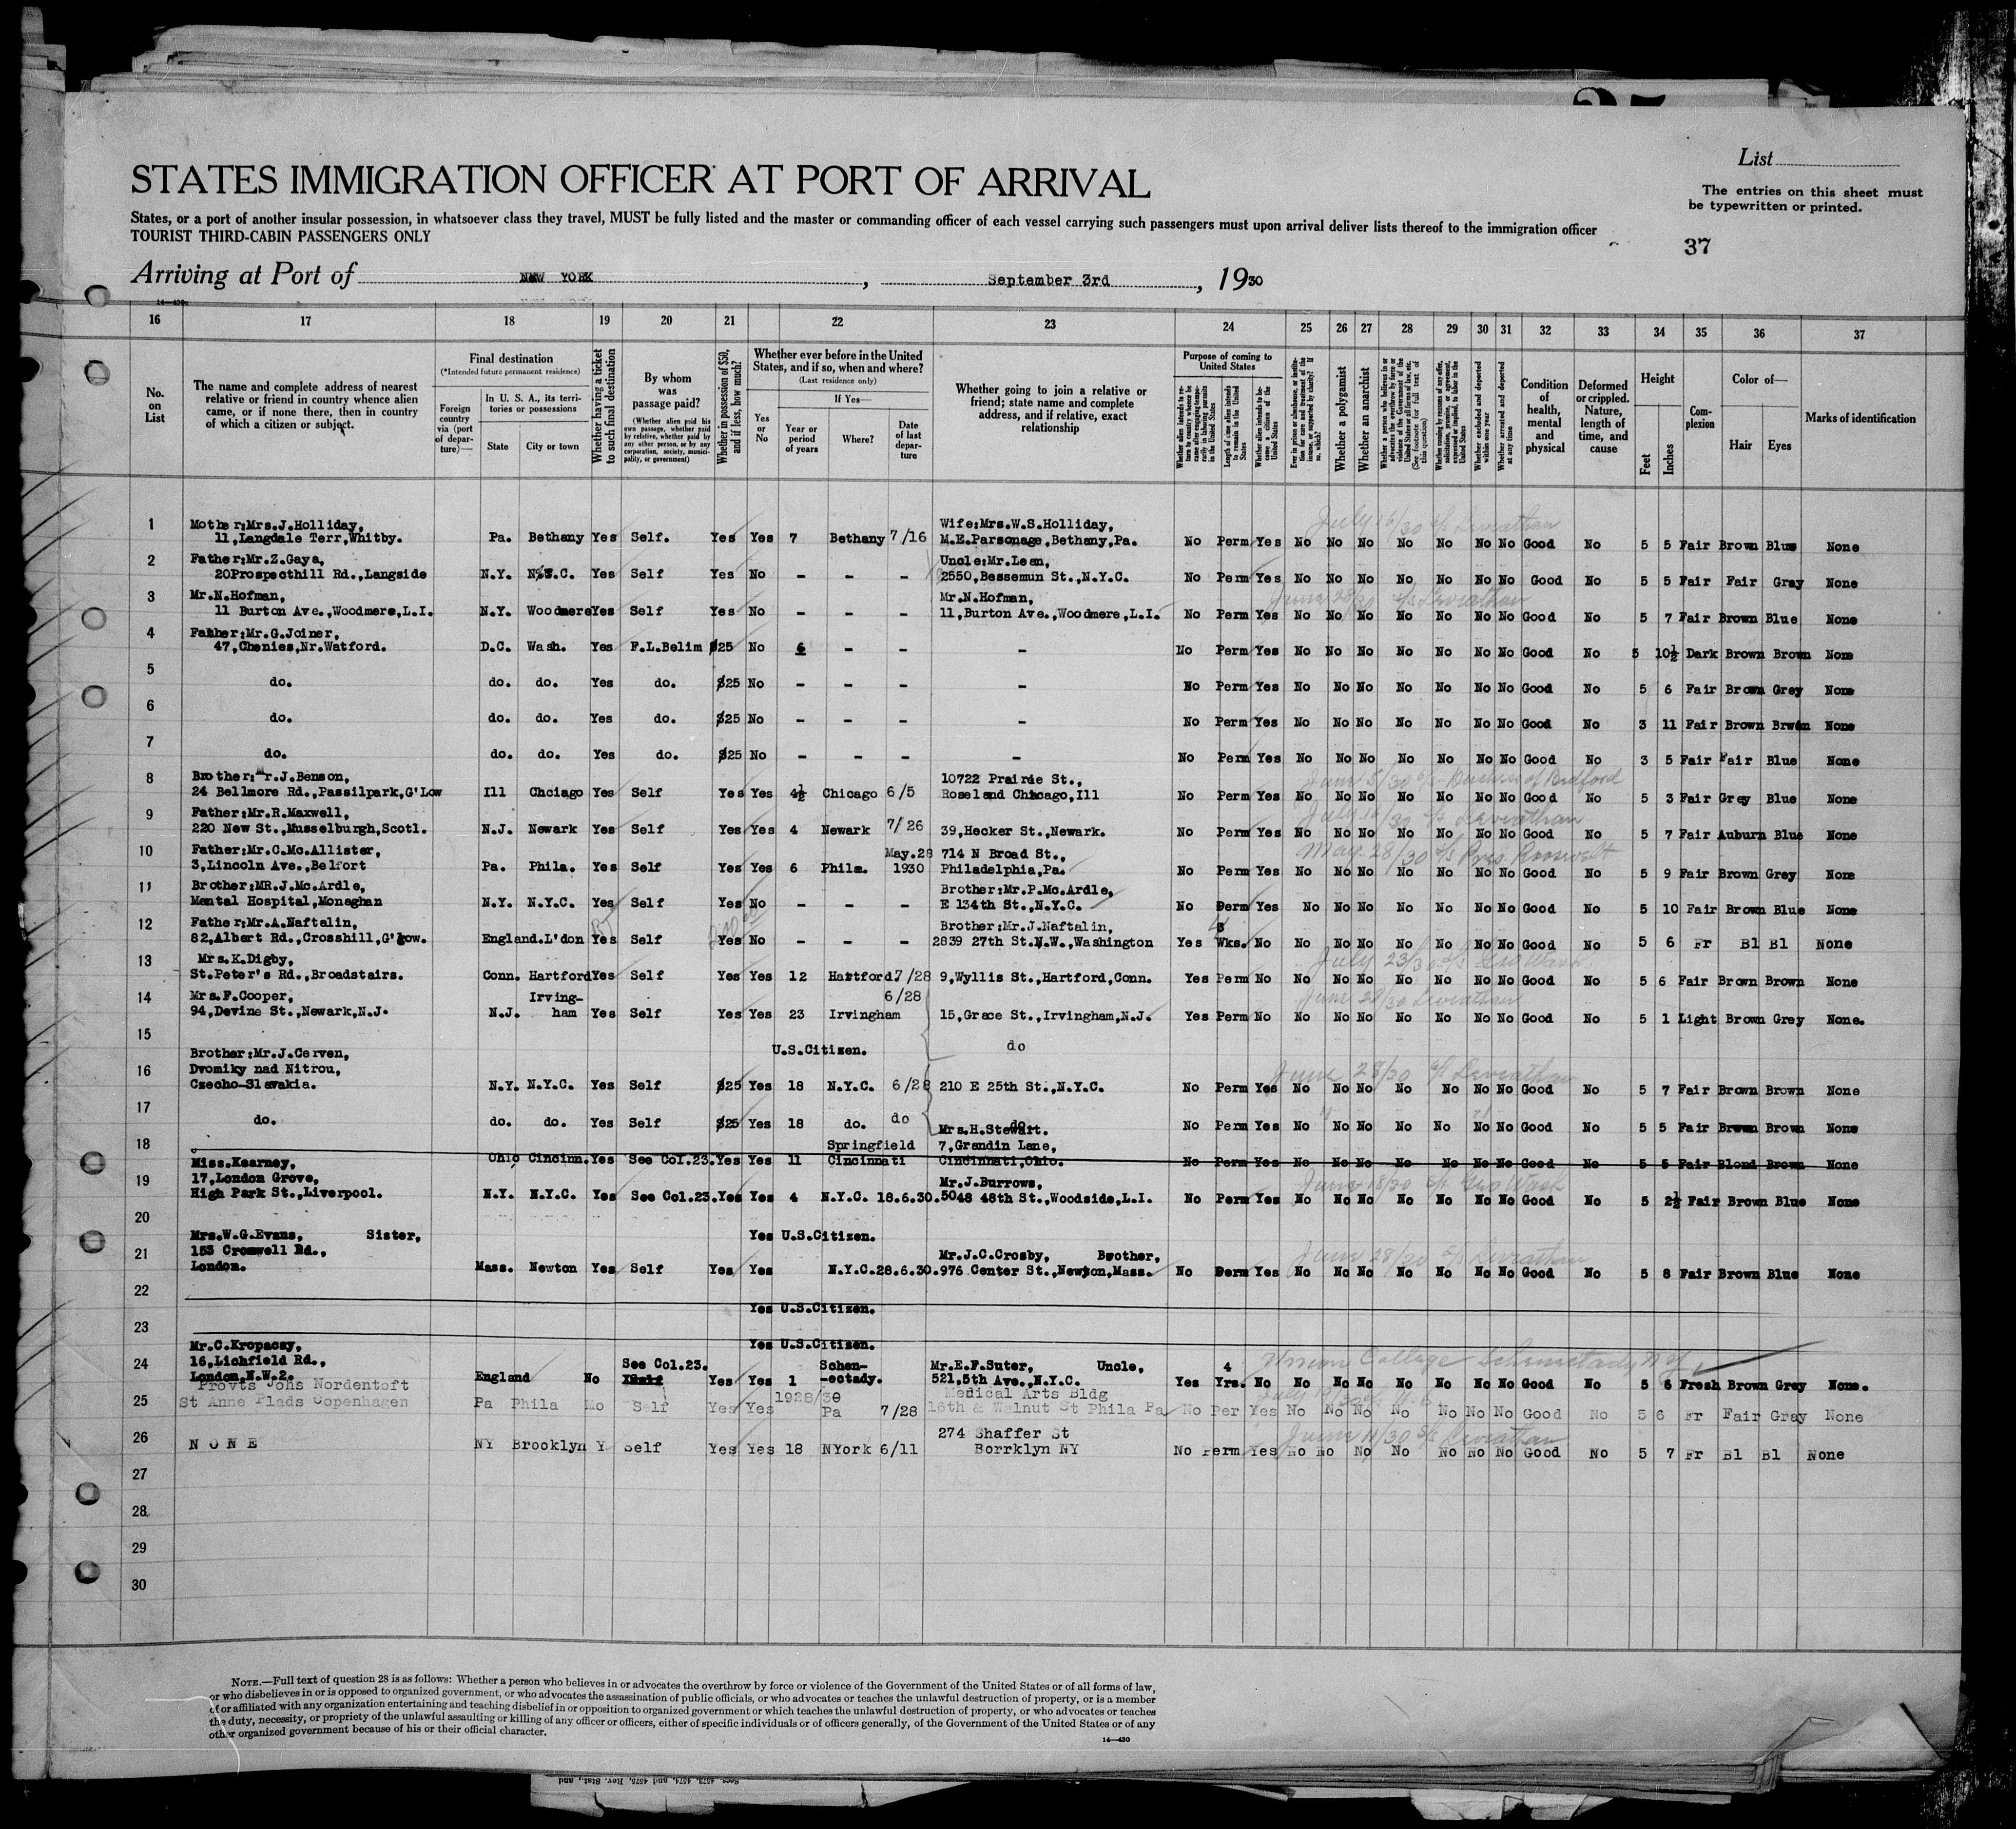 List
The entries on this sheet must
be typewritten or printed.
STATES IMMIGRATION OFFICER AT PORT OF ARRIVAL
States, or a port of another insular possession, in whatsoever class they travel, MUST be fully listed and the master or commanding officer of each vessel carrying such passengers must upon arrival deliver lists thereof to the immigration officer
TOURIST THIRD-CABIN PASSENGERS ONLY
37
Arriving at Port of NEW YORK, September 3rd, 1930
14—430
16 17 18 19 20 21 22 23 24 25 26 27 28 29 30 31 32 33 34 35 36 37
No. on List
The name and complete address of nearest relative or friend in country whence alien came, or if none there, then in country of which a citizen or subject.
Final destination
(*Intended future permanent residence)
Foreign country via (port of departure)—
In U. S. A., its territories or possessions
State City or town
Whether having a ticket to such final destination
By whom was passage paid?
(Whether alien paid his own passage, whether paid by relative, whether paid by any other person, or by any corporation, society, municipality, or government)
Whether in possession of $50, and if less, how much?
Whether ever before in the United States, and if so, when and where?
(Last residence only)
Yes or No
If Yes—
Year or period of years Where? Date of last departure
Whether going to join a relative or friend; state name and complete address, and if relative, exact relationship
Purpose of coming to United States
Whether alien intends to return to country whence he came after engaging temporarily in laboring pursuits in the United States
Length of time alien intends to remain in the United States
Whether alien intends to become a citizen of the United States
Ever in prison or almshouse, or institution for care and treatment of the insane, or supported by charity? If so, which?
Whether a polygamist
Whether an anarchist
Whether a person who believes in or advocates the overthrow by force or violence of the Government of the United States or all forms of law, etc. (See footnote for full text of this question)
Whether coming by reason of any offer, solicitation, promise, or agreement, expressed or implied, to labor in the United States
Whether excluded and deported within one year
Whether arrested and deported at any time
Condition of health, mental and physical
Deformed or crippled. Nature, length of time, and cause
Height
Feet Inches
Complexion
Color of—
Hair Eyes
Marks of identification
July 16/30 s/s Leviathan
1 Mother:Mrs.J.Holliday, Wife:Mrs.W.S.Holliday,
11,Langdale Terr,Whitby. Pa. Bethany Yes Self. Yes Yes 7 Bethany 7/16 M.E.Parsonage,Bethany,Pa. No Perm Yes No No No No No No No Good No 5 5 Fair Brown Blue None
2 Father:Mr.Z.Gaya, Uncle:Mr.Lean,
20Prospecthill Rd.,Langside N.Y. N.Y.C. Yes Self Yes No - - - 2550,Bessemun St.,N.Y.C. No Perm Yes No No No No No No No Good No 5 5 Fair Fair Gray None
June 28/30 s/s Leviathan
3 Mr.N.Hofman, Mr.N.Hofman,
11 Burton Ave.,Woodmere,L.I. N.Y. Woodmere Yes Self Yes No - - - 11,Burton Ave.,Woodmere,L.I. No Perm Yes No No No No No No No Good No 5 7 Fair Brown Blue None
4 Father:Mr.G.Joiner,
47,Chenies,Nr.Watford. D.C. Wash. Yes F.L.Belim $25 No 6 - - - No Perm Yes No No No No No No No Good No 5 10½ Dark Brown Brown None
5 do. do. do. Yes do. $25 No - - - - No Perm Yes No No No No No No No Good No 5 6 Fair Brown Grey None
6 do. do. do. Yes do. $25 No - - - - No Perm Yes No No No No No No No Good No 3 11 Fair Brown Brwon None
7 do. do. do. Yes do. $25 No - - - - No Perm Yes No No No No No No No Good No 3 5 Fair Fair Blue None
June 5/30 s/s Duchess of Bedford
8 Brother:Mr.J.Benson, 10722 Prairie St.,
24 Bellmore Rd.,Passilpark,G'Low Ill Chciago Yes Self Yes Yes 4½ Chicago 6/5 Roseland Chicago,Ill No Perm Yes No No No No No No No Good No 5 3 Fair Grey Blue None
July 16/30 s/s Leviathan
9 Father:Mr.R.Maxwell,
220 New St.,Musselburgh,Scotl. N.J. Newark Yes Self Yes Yes 4 Newark 7/26 39,Hecker St.,Newark. No Perm Yes No No No No No No No Good No 5 7 Fair Auburn Blue None
May 28/30 s/s Pres. Roosevelt
10 Father:Mr.C.Mc.Allister, May.28 714 N Broad St.,
3,Lincoln Ave.,Belfort Pa. Phila. Yes Self Yes Yes 6 Phila. 1930 Philadelphia,Pa. No Perm Yes No No No No No No No Good No 5 9 Fair Brown Grey None
11 Brother:MR.J.Mc.Ardle, Brother:Mr.P.Mc.Ardle,
Mental Hospital,Monaghan N.Y. N.Y.C. Yes Self Yes No - - - E 134th St.,N.Y.C. No Perm Yes No No No No No No No Good No 5 10 Fair Brown Blue None
12 Father:Mr.A.Naftalin, Brother:Mr.J.Naftalin,
82,Albert Rd.,Crosshill,G'gow. England.L'don Yes Self Yes No - - - 2839 27th St.N.W.,Washington Yes Wks. No No No No No No No No Good No 5 6 Fr Bl Bl None
July 23/30 s/s Geo Wash
13 Mrs.K.Digby,
St.Peter's Rd.,Broadstairs. Conn. Hartford Yes Self Yes Yes 12 Hartford.7/28 9,Wyllis St.,Hartford,Conn. Yes Perm No No No No No No No No Good No 5 6 Fair Brown Brown None
June 28/30 Leviathan
14 Mrs.F.Cooper, Irving- 6/28
94,Devine St.,Newark,N.J. N.J. ham Yes Self Yes Yes 23 Irvingham 15,Grace St.,Irvingham,N.J. Yes Perm No No No No No No No No Good No 5 1 Light Brown Grey None.
15 U.S.Citizen. do
June 28/30 s/s Leviathan
16 Brother:Mr.J.Cerven,
Dvomiky nad Nitrou,
Czecho-Slavakia. N.Y. N.Y.C. Yes Self $25 Yes 18 N.Y.C. 6/28 210 E 25th St.,N.Y.C. No Perm Yes No No No No No No No Good No 5 7 Fair Brown Brown None
17 do. do. do. Yes Self $25 Yes 18 do. do do. No Perm Yes No No No No No No No Good No 5 5 Fair Brown Brown None
18 Springfield Mrs.H.Stewart. 7,Grandin Lane,
Ohio Cincinn. Yes See Col.23. Yes Yes 11 Cincinnati Cincinnati,Ohio. No Perm Yes No No No No No No No Good No 5 5 Fair Blond Brown None
June 18/30 s/s Geo Wash
19 Miss.Kearney,
17,London Grove, Mr.J.Burrows,
High Park St.,Liverpool. N.Y. N.Y.C. Yes See Col.23. Yes Yes 4 N.Y.C. 18.6.30. 5048 48th St.,Woodside,L.I. No Perm Yes No No No No No No No Good No 5 2½ Fair Brown Blue None
20 Yes U.S.Citizen.
June 28/30 s/s Leviathan
21 Mrs.W.G.Evans, Sister,
153 Cromwell Rd., Mr.J.C.Crosby, Brother,
London. Mass. Newton Yes Self Yes Yes N.Y.C.28.6.30. 976 Center St.,Newton,Mass. No Perm Yes No No No No No No No Good No 5 8 Fair Brown Blue None
22 Yes U.S.Citizen.
23 Yes U.S.Citizen.
Union College Schenectady NY
24 Mr.C.Kropacsy,
16,Lichfield Rd., See Col.23. Schen- Mr.E.F.Suter, Uncle, 4
London,N.W.2. England No Yes Yes 1 -ectady. 521,5th Ave.,N.Y.C. Yes Yrs. No No No No No No No No Good No 5 6 Fresh Brown Grey None.
25 Provts Johs Nordentoft 1928/30 Medical Arts Bldg
St Anne Plads Copenhagen Pa Phila No Self Yes Yes Pa 7/28 16th & Walnut St Phila Pa No Per Yes No No No No No No No Good No 5 6 Fr Fair Gray None
June 11/30 s/s Leviathan
26 274 Shaffer St
NONE NY Brooklyn Y Self Yes Yes 18 NYork 6/11 Borrklyn NY No Perm Yes No No No No No No No Good No 5 7 Fr Bl Bl None
27
28
29
30
NOTE.—Full text of question 28 is as follows: Whether a person who believes in or advocates the overthrow by force or violence of the Government of the United States or of all forms of law,
or who disbelieves in or is opposed to organized government, or who advocates the assassination of public officials, or who advocates or teaches the unlawful destruction of property, or is a member
of or affiliated with any organization entertaining and teaching disbelief in or opposition to organized government or which teaches the unlawful destruction of property, or who advocates or teaches
the duty, necessity, or propriety of the unlawful assaulting or killing of any officer or officers, either of specific individuals or of officers generally, of the Government of the United States or of any
other organized government because of his or their official character.
14—430
Secs. 4573, 4574, and 4575, Rev. Stat., and